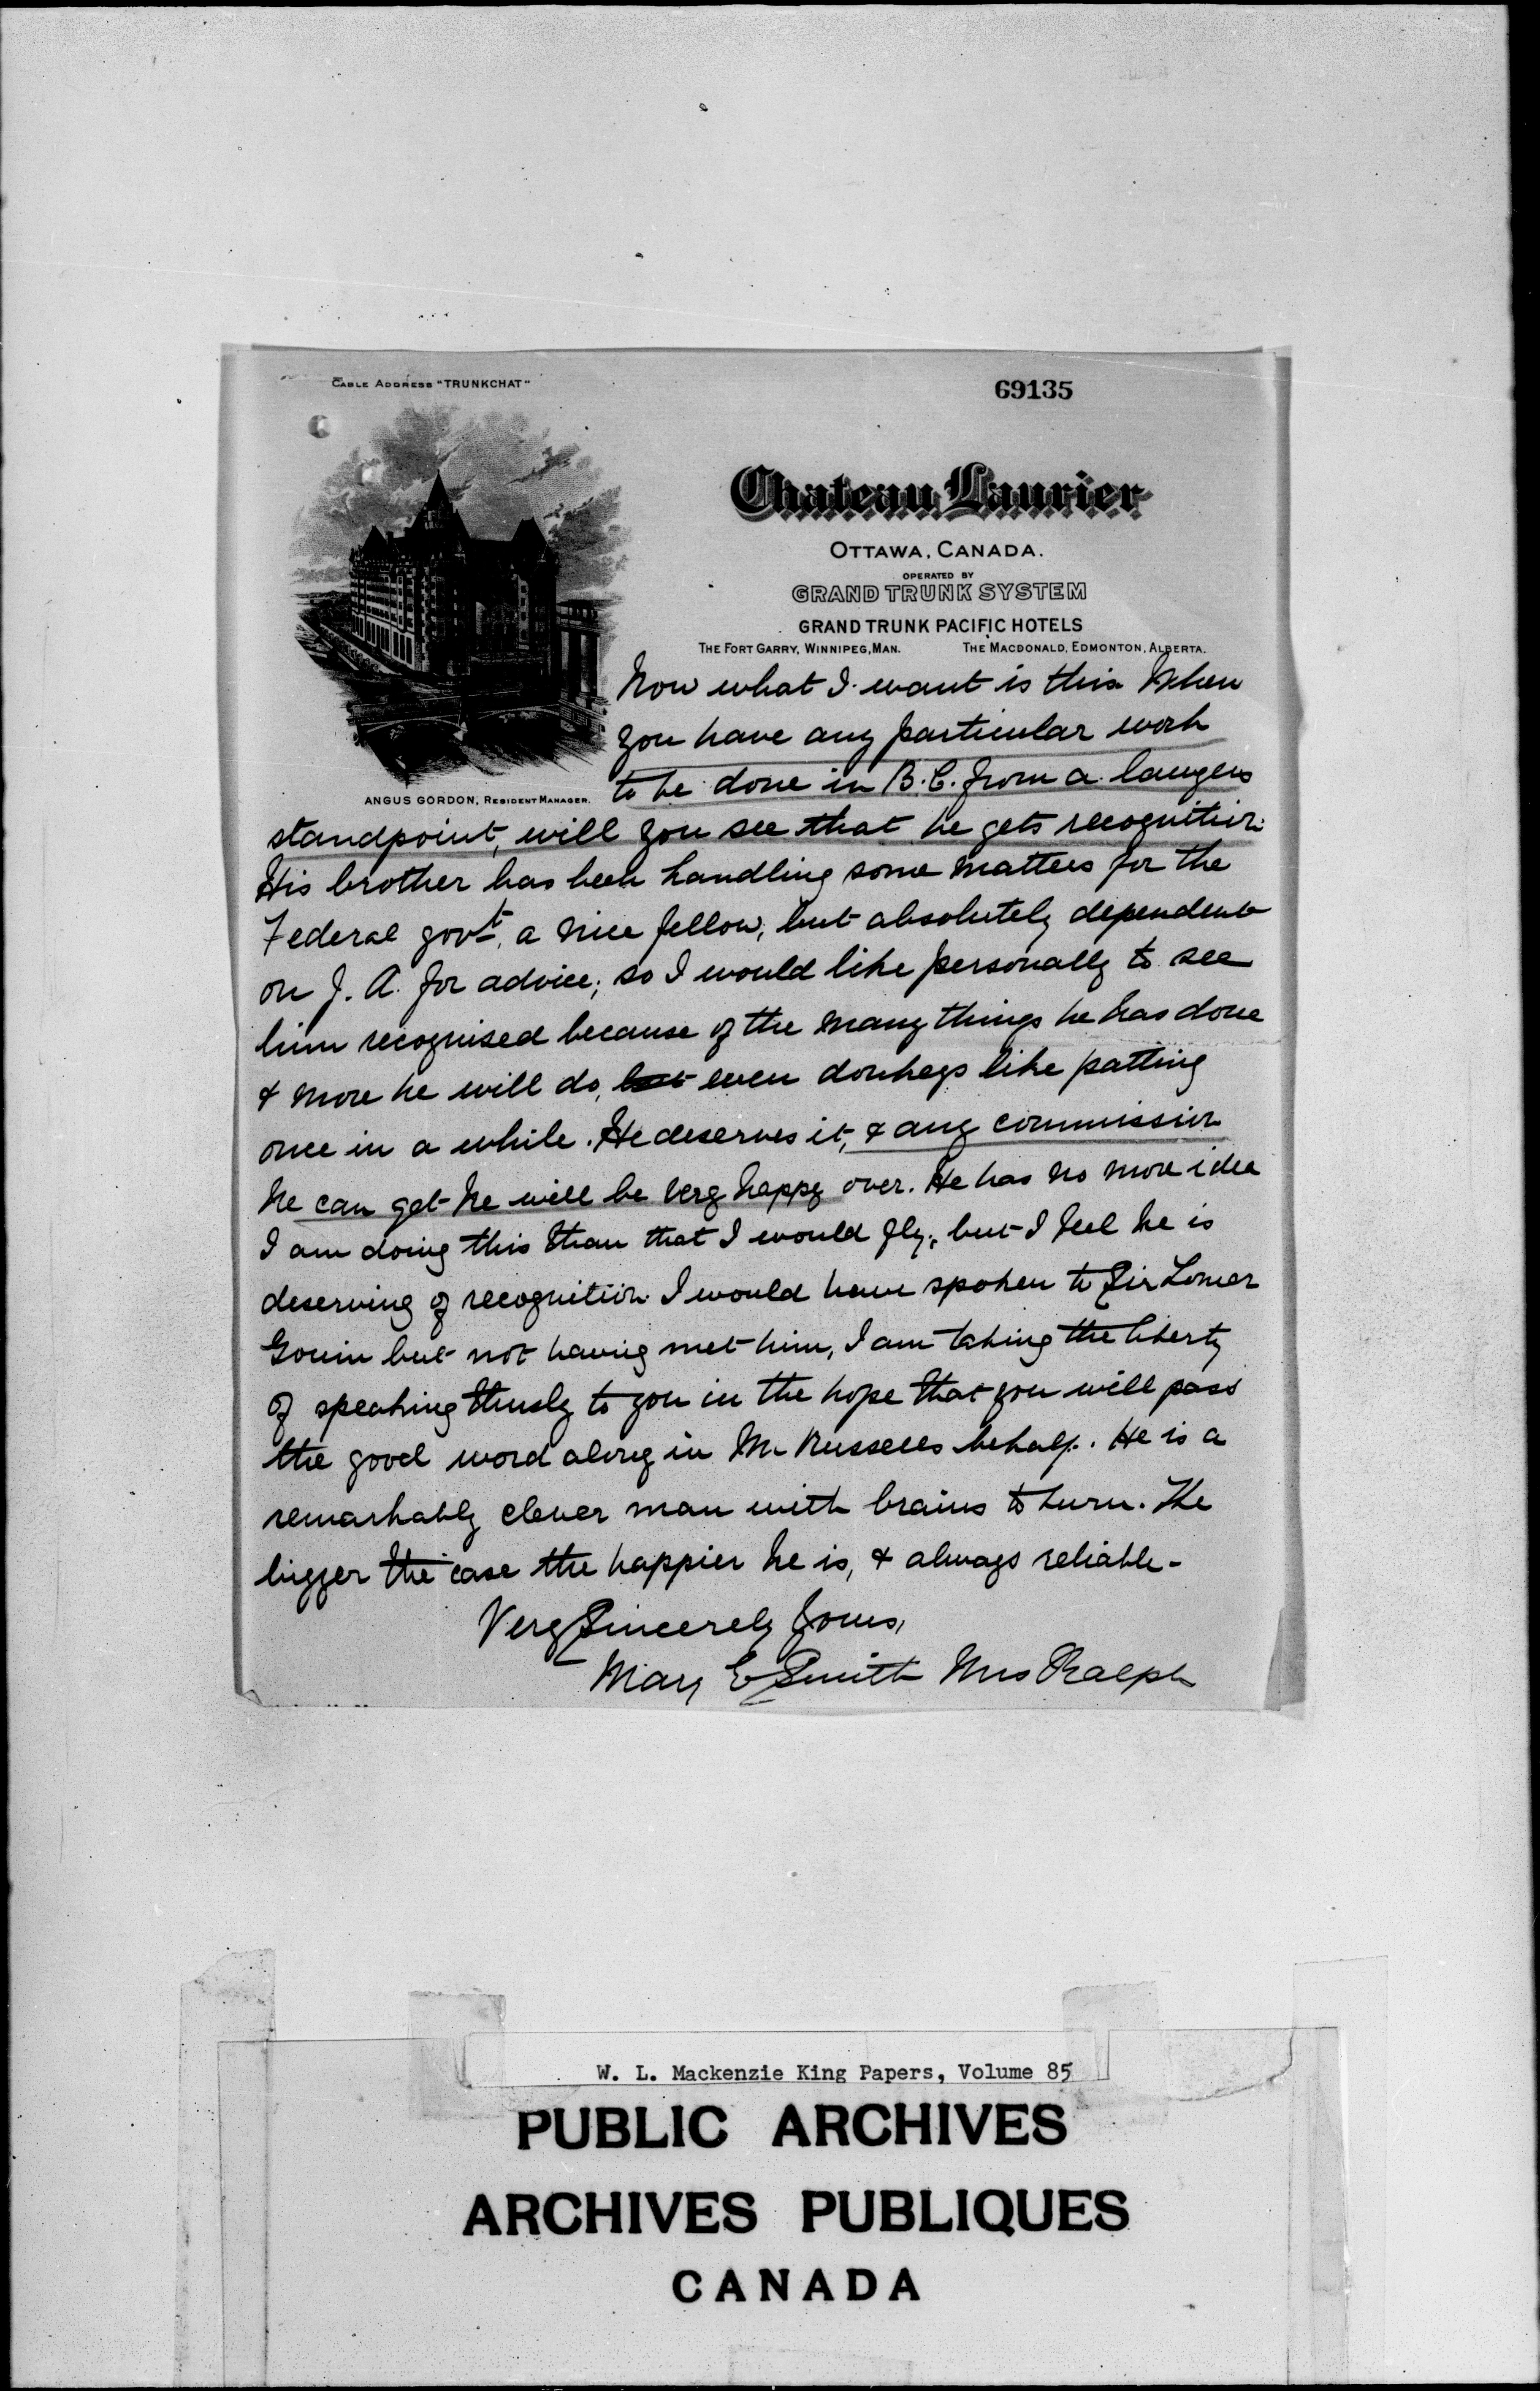 CABLE ADDRESS "TRUNKCHAT"
69135
Chateau Laurier
OTTAWA, CANADA.
OPERATED BY
GRAND TRUNK SYSTEM
GRAND TRUNK PACIFIC HOTELS
THE FORT GARRY, WINNIPEG, MAN. THE MACDONALD, EDMONTON, ALBERTA.
ANGUS GORDON, RESIDENT MANAGER.
Now what I want is this When
you have any particular work
to be done in B.C. from a lawyers
standpoint, will you see that he gets recognition.
His brother has been handling some matters for the
Federal govt, a nice fellow, but absolutely dependent
on J. A. for advice; so I would like personally to see
him recognised because of the many things he has done
& more he will do, but even donkeys like patting
once in a while. He deserves it, & any commission
he can get he will be very happy over. He has no more idea
I am doing this than that I would fly, but I feel he is
deserving of recognition. I would have spoken to Sir Lomer
Gouin but not having met him, I am taking the liberty
of speaking thusly to you in the hope that you will pass
the good word along in Mr Russells behalf. He is a
remarkably clever man with brains to burn. The
bigger the case the happier he is, & always reliable -
Very Sincerely Yours,
Mary E Smith Mrs Ralph
W. L. Mackenzie King Papers, Volume 85
PUBLIC ARCHIVES
ARCHIVES PUBLIQUES
CANADA